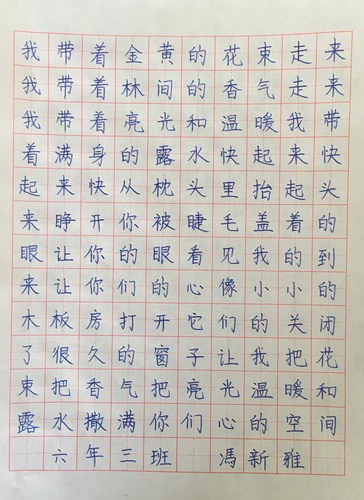 我带着金黄的花束走来
我带着林间的香气走来
我带着亮光和温暖我带
着满身的露水快起来快
起来快从枕头里抬起头
来睁开你被睫毛盖着的
眼让你的眼看见我的到
来让你们的心像小小的
木板房打开它们的关闭
了很久的窗子让我把花
束把香气把亮光温暖和
露水撒满你们心的空间
六年三班 馮新雅